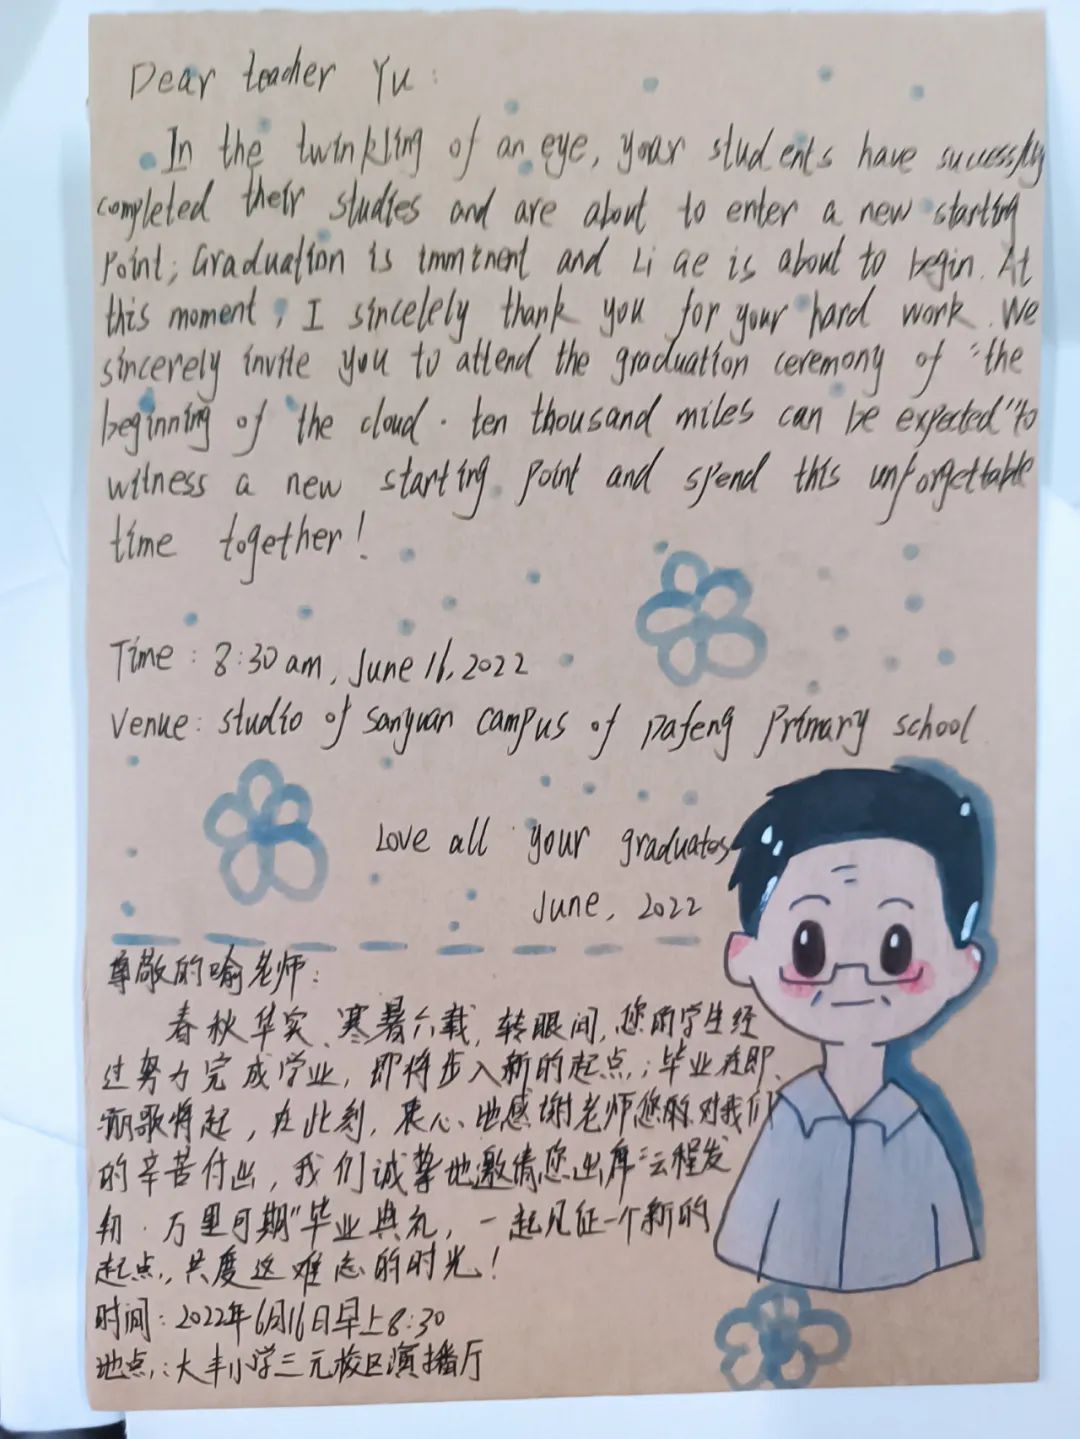 Dear teacher Yu:
In the twinkling of an eye, your students have successfully
completed their studies and are about to enter a new starting
Point; Graduation is imminent and Li ge is about to begin. At
this moment, I sincelely thank you for your hard work. We
sincerely invite you to attend the graduation ceremony of "the
beginning of the cloud · ten thousand miles can be expected" to
witness a new starting point and spend this unforgettable
time together!
Time: 8:30 am, June 16, 2022
Venue: studio of Sanyuan campus of Dafeng Primary school
Love all your graduates
June, 2022
尊敬的喻老师:
春秋华实、寒暑六载,转眼间,您的学生经
过努力完成学业,即将步入新的起点;毕业在即、
骊歌将起,在此刻,衷心地感谢老师您的对我们
的辛苦付出,我们诚挚地邀请您出席"云程发
轫·万里可期"毕业典礼,一起见证一个新的
起点,共度这难忘的时光!
时间:2022年6月16日早上8:30
地点:大丰小学三元校区演播厅